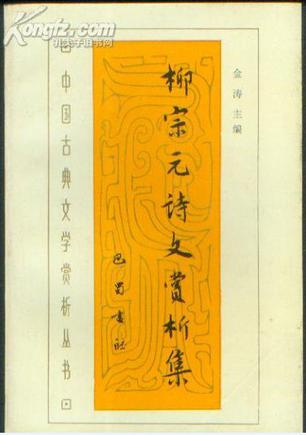 kongfz.com
孔夫子旧书网
金涛主编
柳宗元诗文赏析集
巴蜀书社
中国古典文学赏析丛书